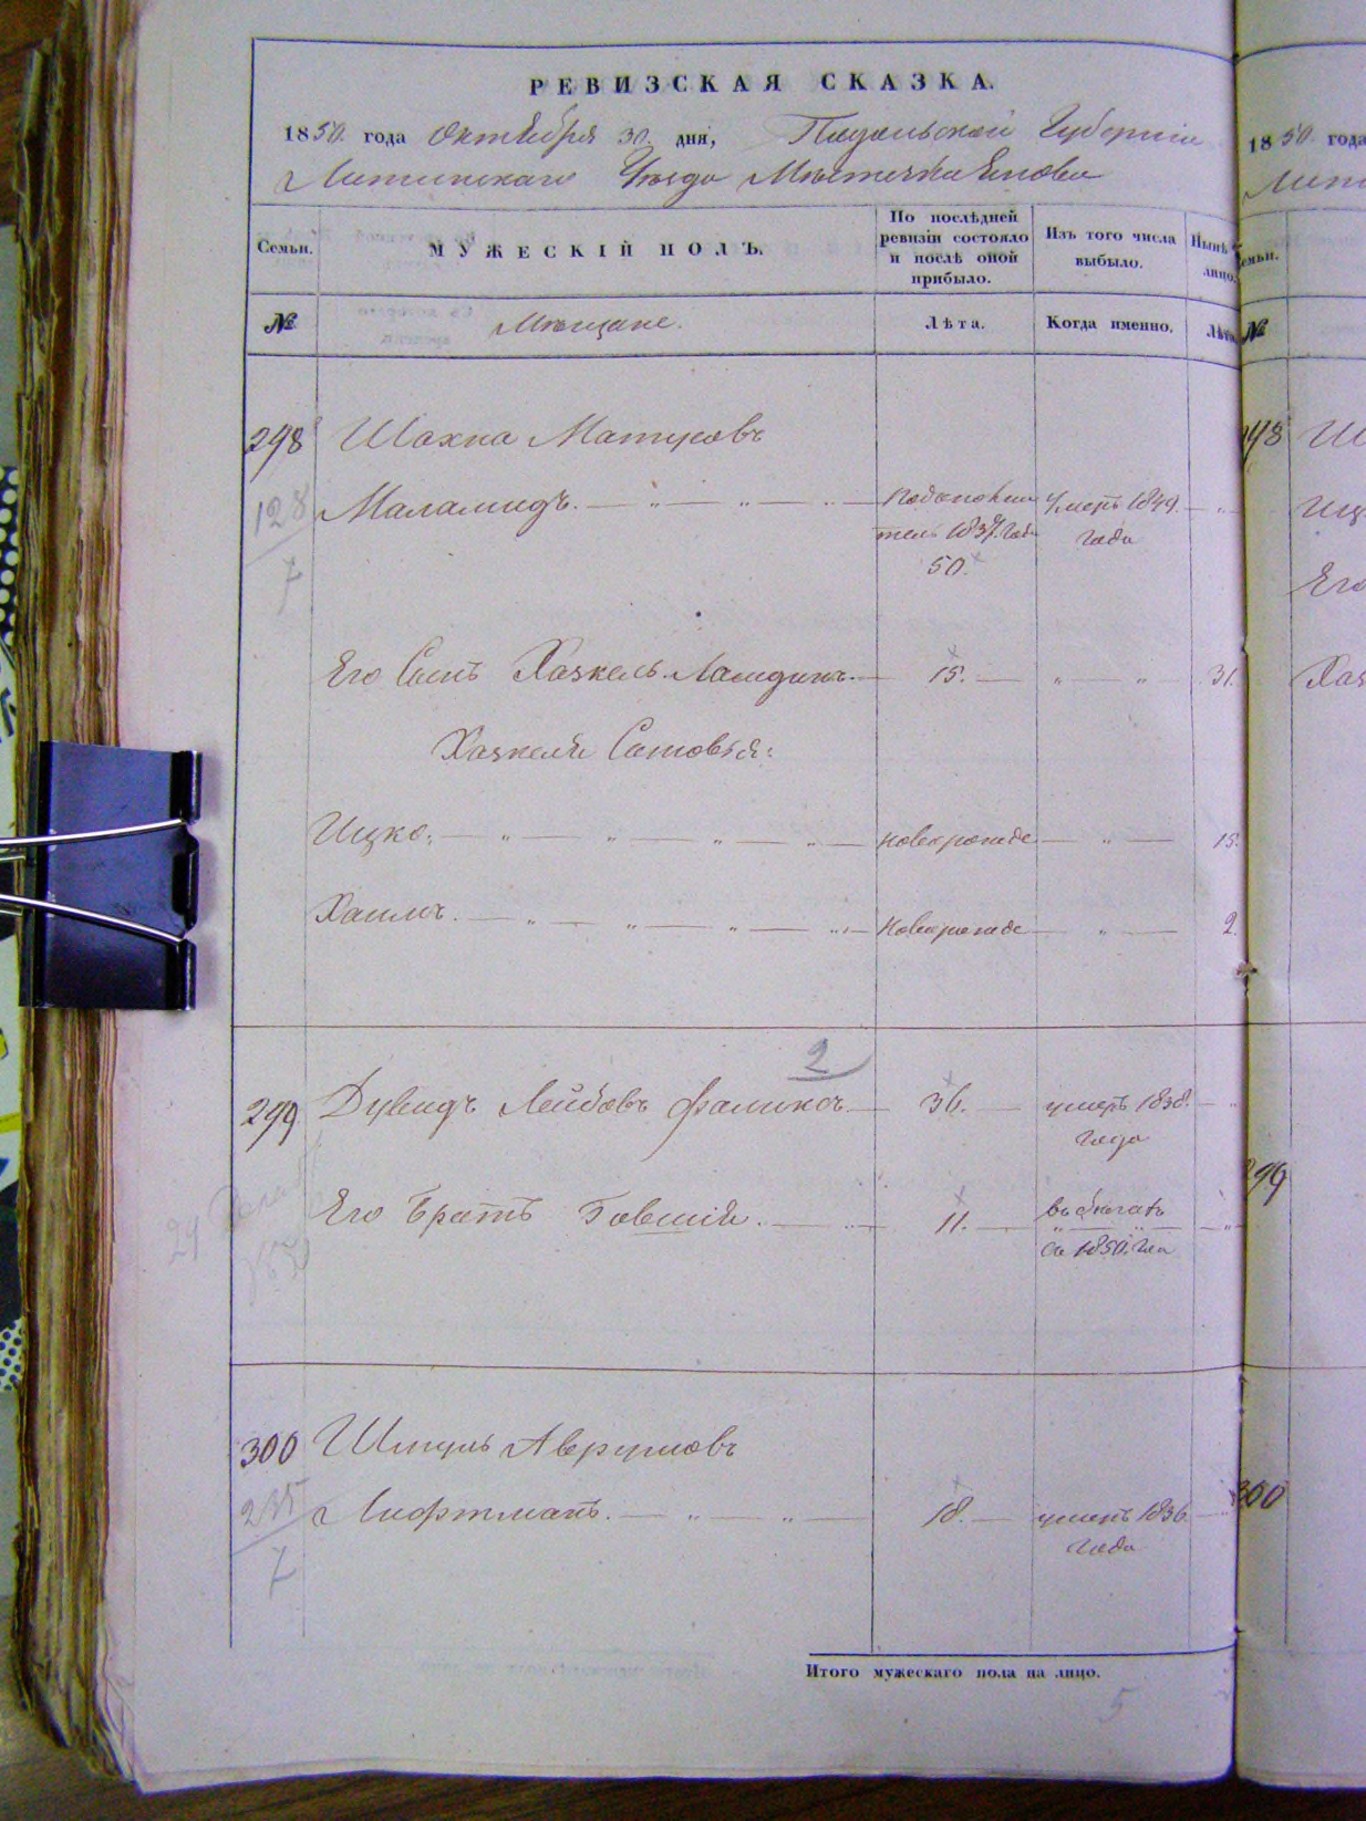 РЕВИЗСКАЯ СКАЗКА.
1850. года Октября 30. дня, Подольской Губернии
Литинскаго Уѣзда Мѣстечка Янова
Семьи.
МУЖЕСКІЙ ПОЛЪ.
По послѣдней ревизіи состояло и послѣ оной прибыло.
Изъ того числа выбыло.
Нынѣ
лицо.
№
Мѣщане.
Лѣта.
Когда именно.
Лѣта
298 Шахна Матусовъ
128 Маламидъ. Умеръ 1849.
1837. года
года
7
50.
Его Сынъ Хаскель 15. 31.
Хаскеля Сыновья:
Ицко. новорожде 15.
Хаимъ. новорожде 2.
2
299 Дувидъ Лейбовъ Фаликъ 36. умеръ 1838.
года
Его Братъ Говшій. 11. въ бѣгахъ
съ 1850. года
300 Шмуль Аврумовъ
235 Лифтманъ. 18. умеръ 1836
года
7
Итого мужескаго пола на лицо.
5
1850 года
Семьи.
№
298
299
300